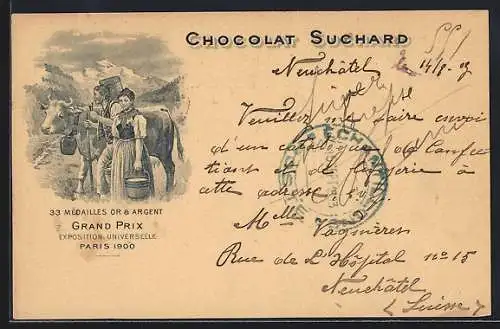 CHOCOLAT SUCHARD
33 MÉDAILLES OR & ARGENT
GRAND PRIX
EXPOSITION UNIVERSELLE
PARIS 1900
Neuchâtel le 14/8
Veuillez me faire envoi
d'un catalogue de Confec
tions et de lingerie à
cette adresse
Melle Vagnières
Rue de L'Hôpital no 15
Neuchâtel
(Suisse)